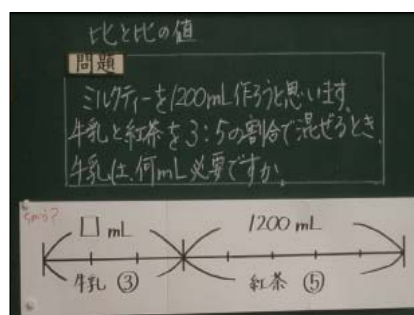 比と比の値
問題
ミルクティーを1200mL作ろうと思います。
牛乳と紅茶を3:5の割合で混ぜるとき、
牛乳は、何mL必要ですか。
ちがう?
□mL
1200mL
牛乳③
紅茶⑤